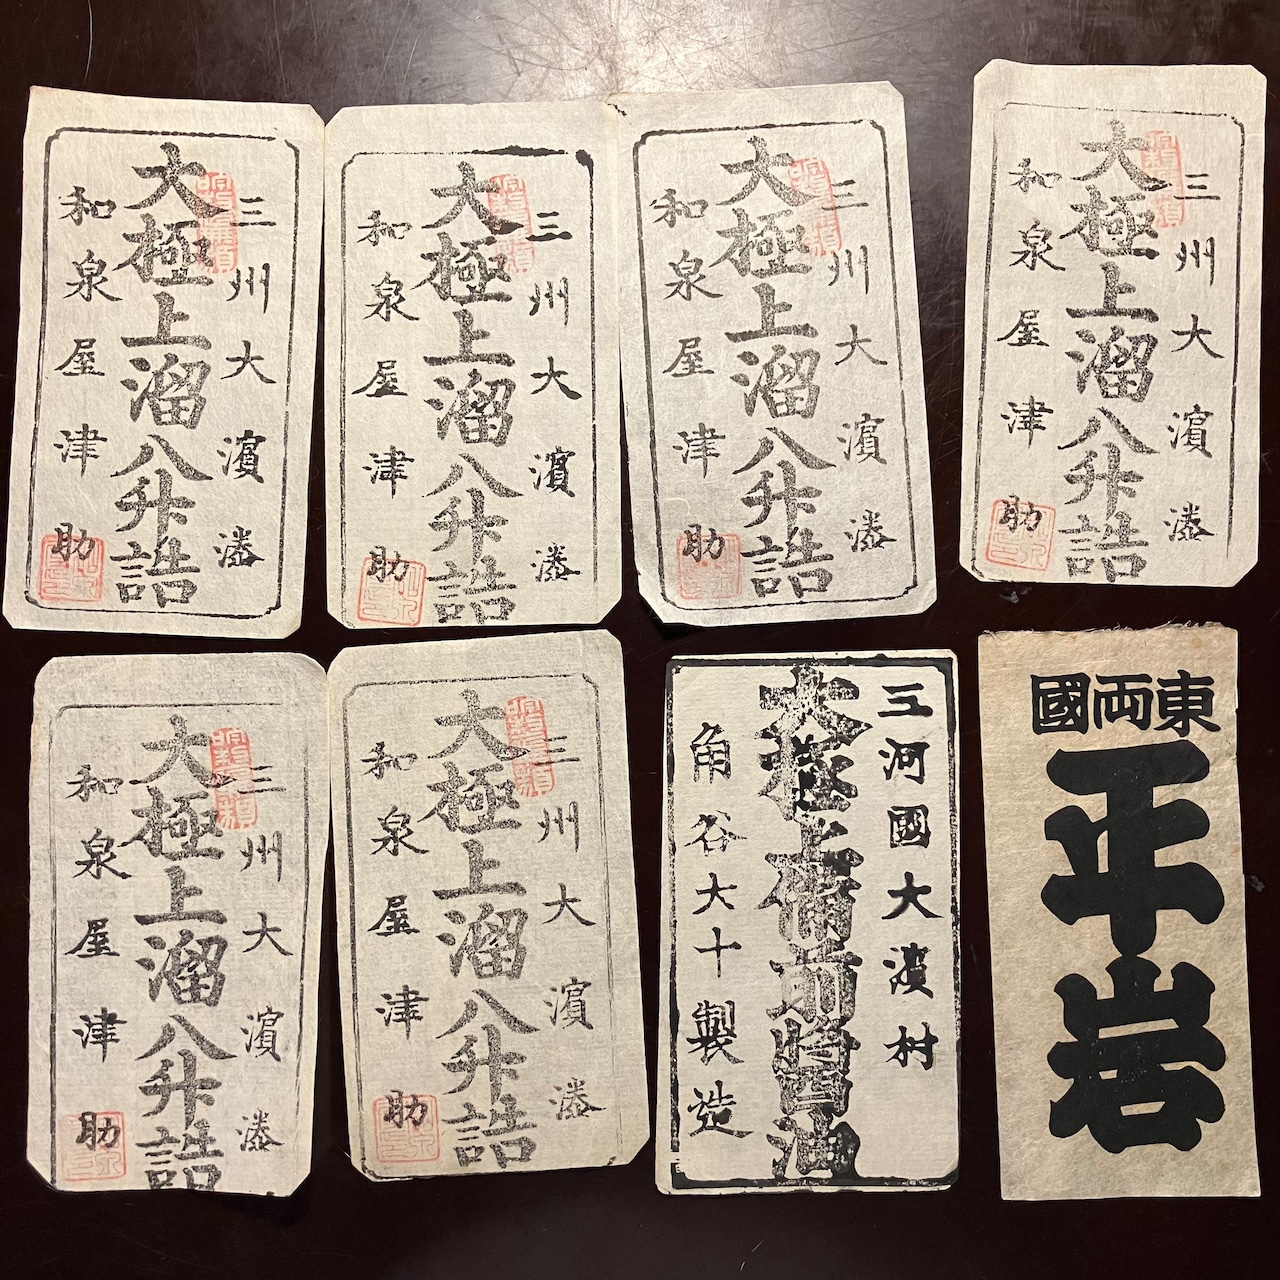 三州大濱湊
大極上溜八升詰
和泉屋津助
三州大濱湊
大極上溜八升詰
和泉屋津助
三州大濱湊
大極上溜八升詰
和泉屋津助
三州大濱湊
大極上溜八升詰
和泉屋津助
三州大濱湊
大極上溜八升詰
和泉屋津助
三州大濱湊
大極上溜八升詰
和泉屋津助
三河國大濱村
大極上備前醤油
角谷大十製造
東両國
平岩